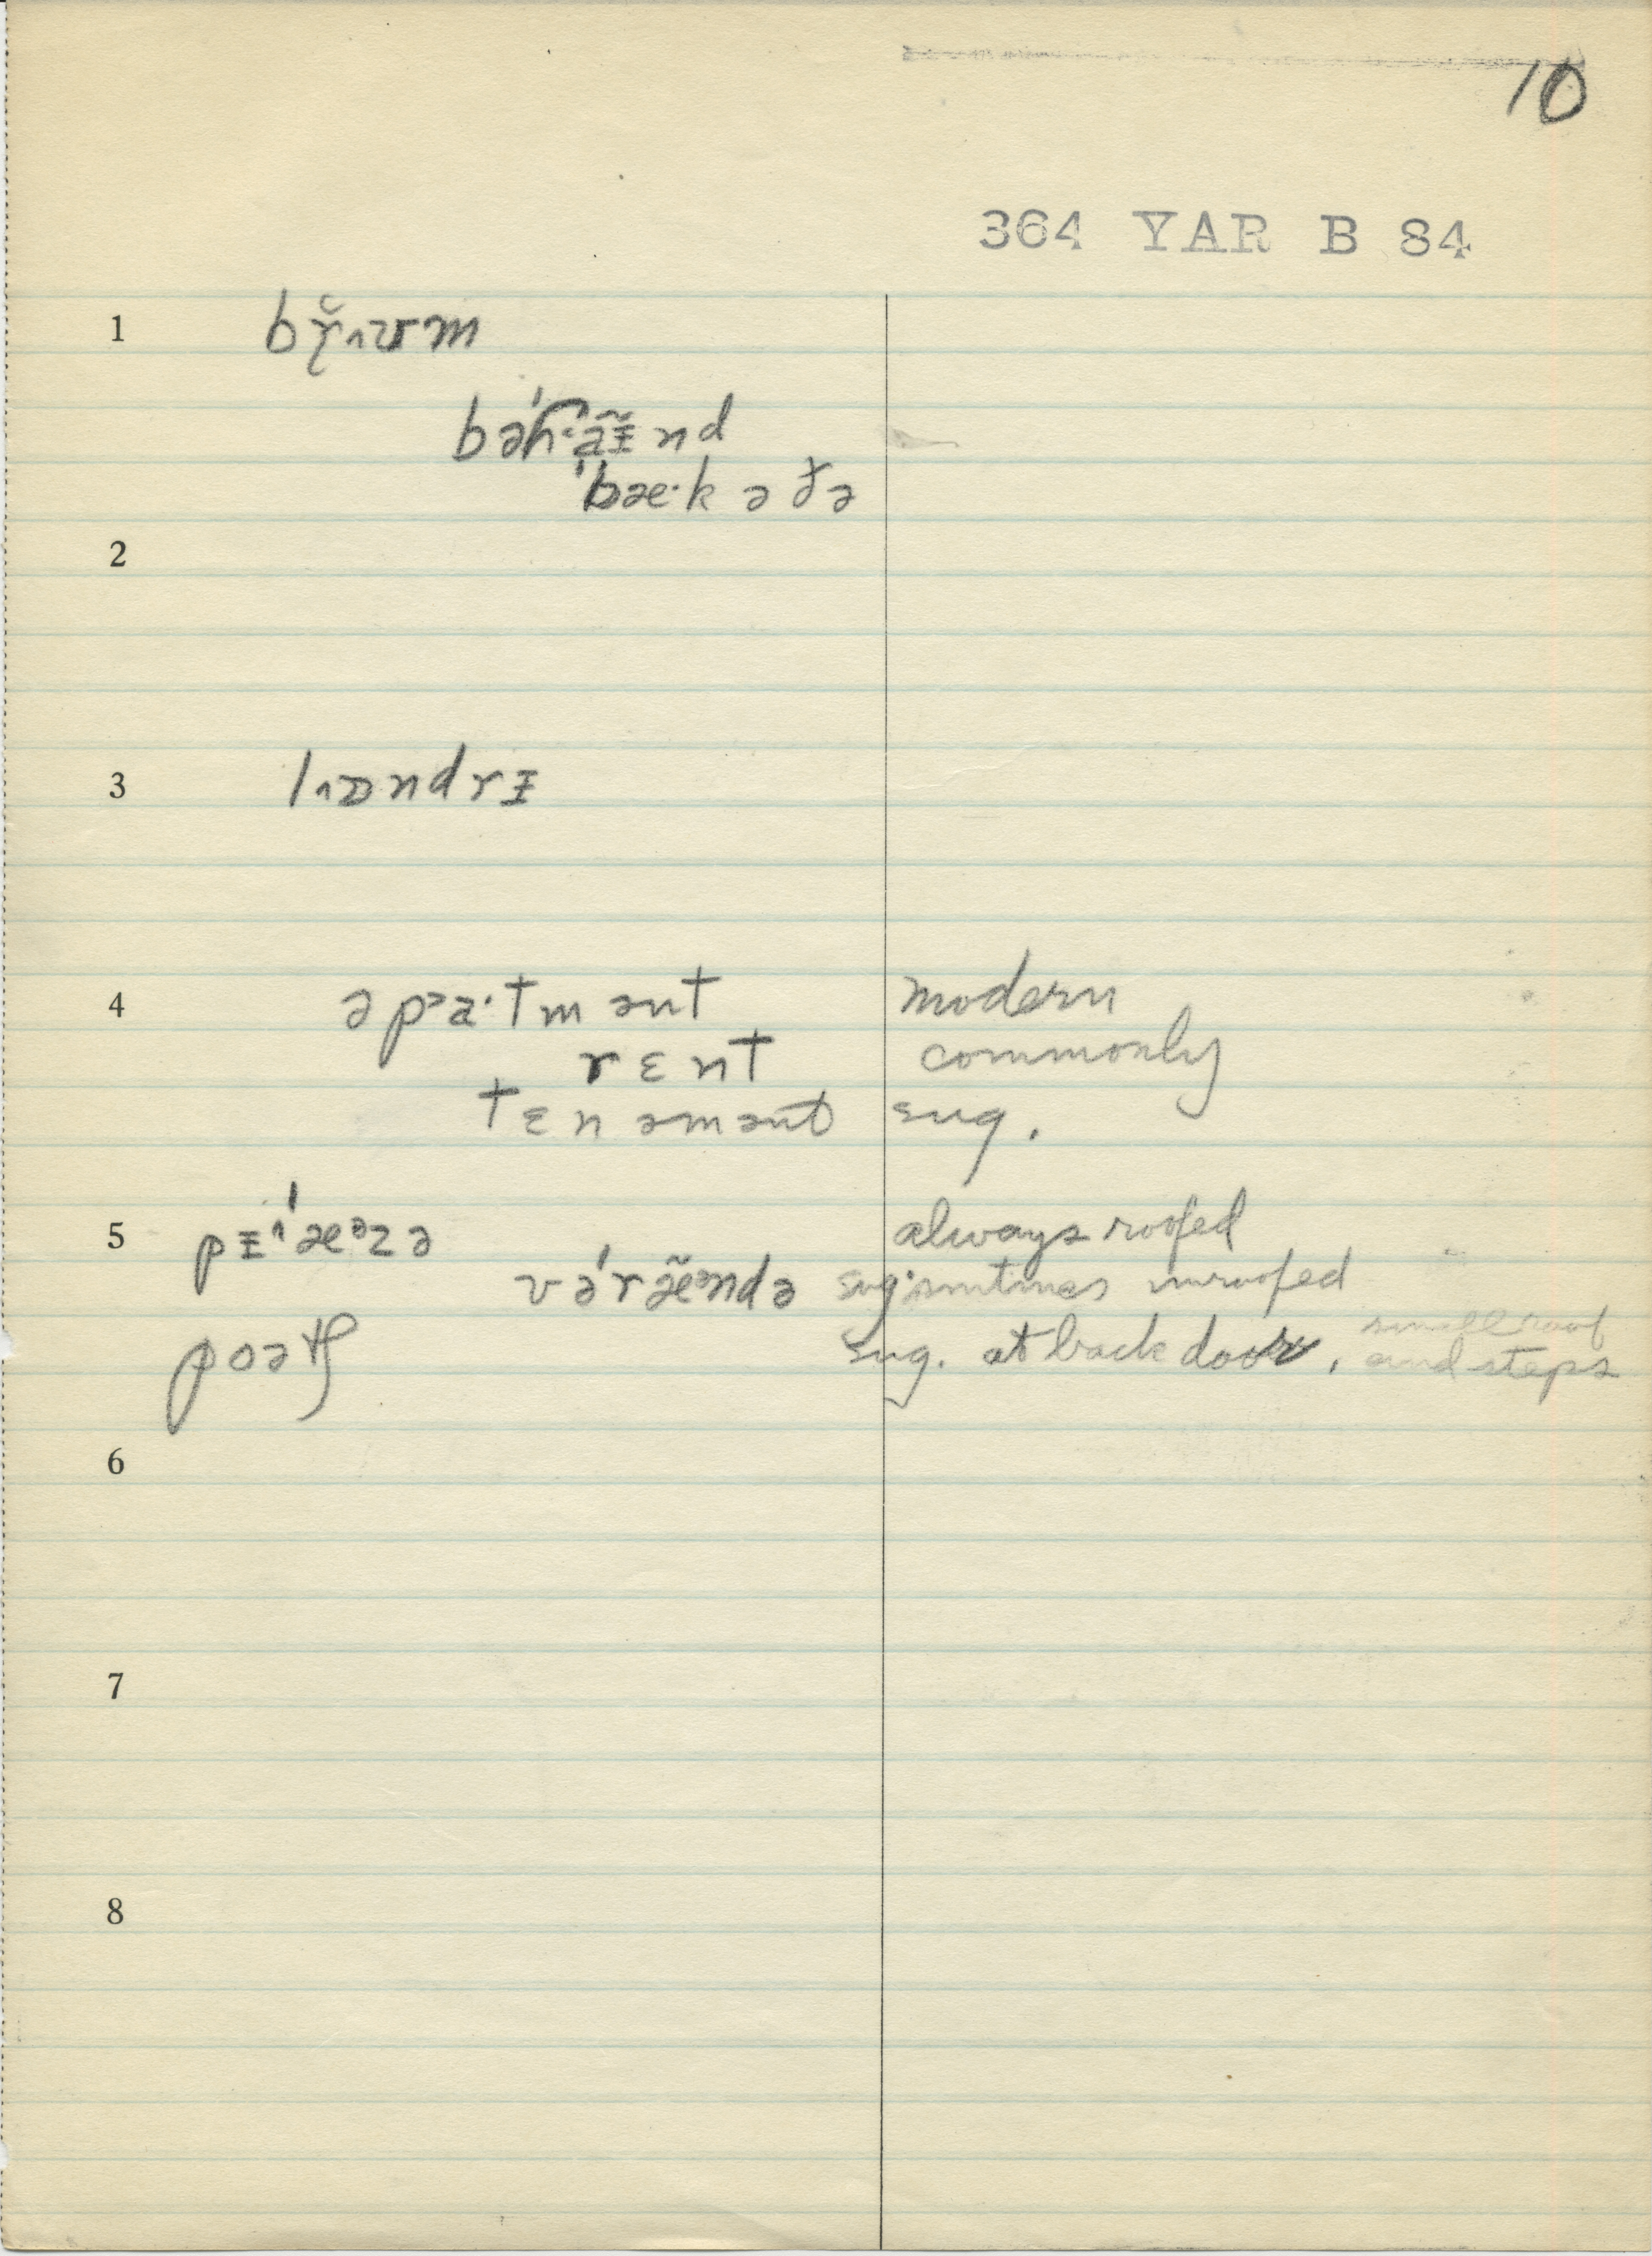 10
364 YAR B 84
1 bɤ̆˄ʊm
bəˈhaɪ̃nd
ˈbæ·k ə ðə
2
3 l˄ɒndrɪ
4 əpᵊa·tmənt modern
rɛnt commonly
tɛnəmənt sug.
5 pɪ˄ˈæᵊzə always roofed
vəˈræ̃ᵊndə sug. smtimes unroofed
poətʃ sug. at back door, small roof and steps
6
7
8